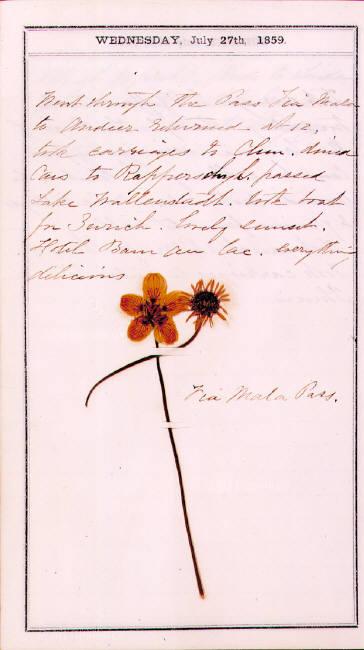 WEDNESDAY, July 27th, 1859.
Went through the Pass Via Mala
to Andeer returned at 12,
took carriages to Chur. dined
Cars to Rapperschyl. passed
Lake Wallenstadt. took boat
for Zurich. lovely sunset.
Hotel Baur au Lac. everything
delicious
Via Mala Pass.